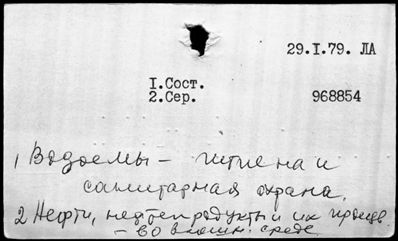 29.I.79. ЛА
I.Сост.
2.Сер. 968854
1 Водоемы - гигиена и
санитарная охрана.
2 Нефти, нефтепродукты и их
- во внешн. среде